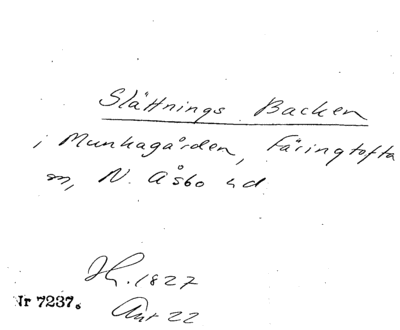 Slättnings Backen
i Munkagården, Färingtofta
sn, N. Åsbo hd
H. 1827
Nr 7237.
Ant 22